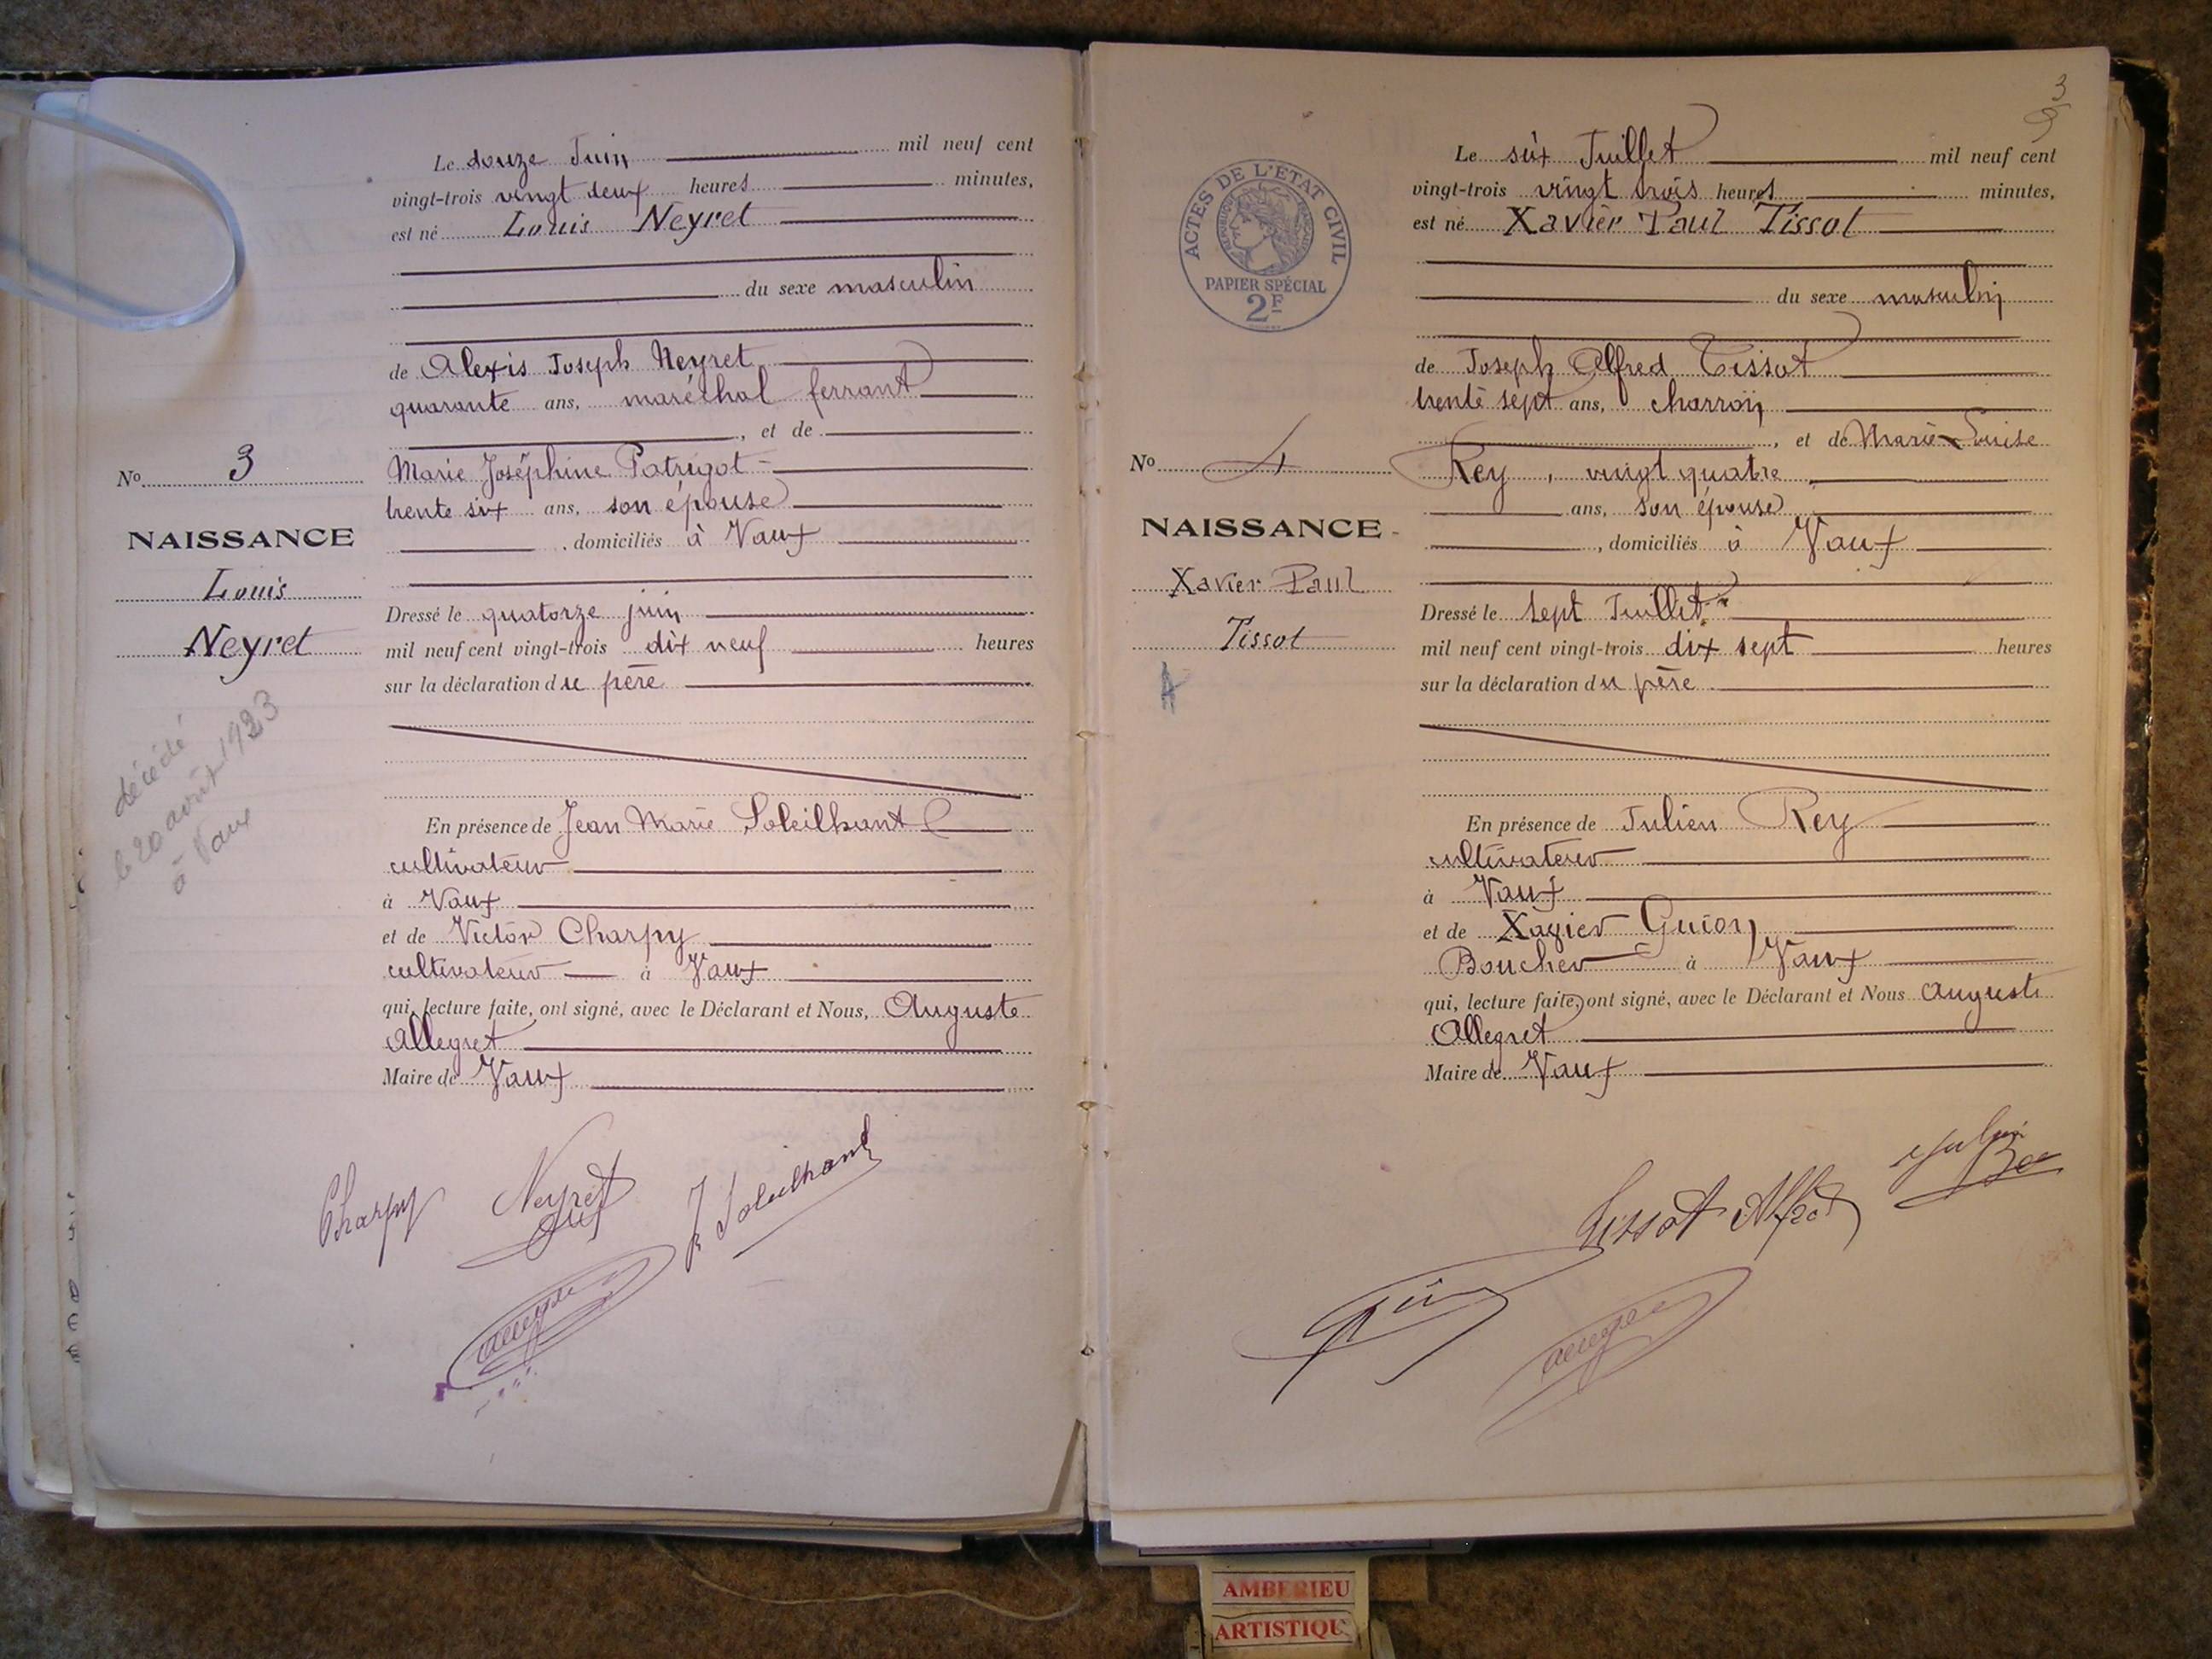 Le douze Juin mil neuf cent
vingt-trois vingt deux heures minutes,
est né Louis Neyret
du sexe masculin
de Alexis Joseph Neyret
quarante ans, maréchal ferrant
, et de
Marie Joséphine Patrigot
trente six ans, son épouse
, domiciliés à Vaux
Dressé le quatorze juin
mil neuf cent vingt-trois dix neuf heures
sur la déclaration du père
En présence de Jean Marie Soleilhant
cultivateur
à Vaux
et de Victor Charpy
cultivateur à Vaux
qui, lecture faite, ont signé, avec le Déclarant et Nous, Auguste
Allegret
Maire de Vaux
No 3
NAISSANCE
Louis
Neyret
décédé
le 20 août 1923
à Vaux
Charpy
Neyret
J Soleilhand
3
ACTES DE L'ETAT CIVIL
REPUBLIQUE FRANÇAISE
PAPIER SPÉCIAL
2F
Le six Juillet mil neuf cent
vingt-trois vingt trois heures minutes,
est né Xavier Paul Tissot
du sexe masculin
de Joseph Alfred Tissot
trente sept ans, charron
, et de Marie Louise
Rey, vingt quatre
ans, son épouse
, domiciliés à Vaux
Dressé le sept Juillet
mil neuf cent vingt-trois dix sept heures
sur la déclaration du père
En présence de Julien Rey
cultivateur
à Vaux
et de Xavier Guion
Boucher à Vaux
qui, lecture faite, ont signé, avec le Déclarant et Nous Auguste
Allegret
Maire de Vaux
No 4
NAISSANCE
Xavier Paul
Tissot
A
Tissot Alfred
AMBERIEU
ARTISTIQU